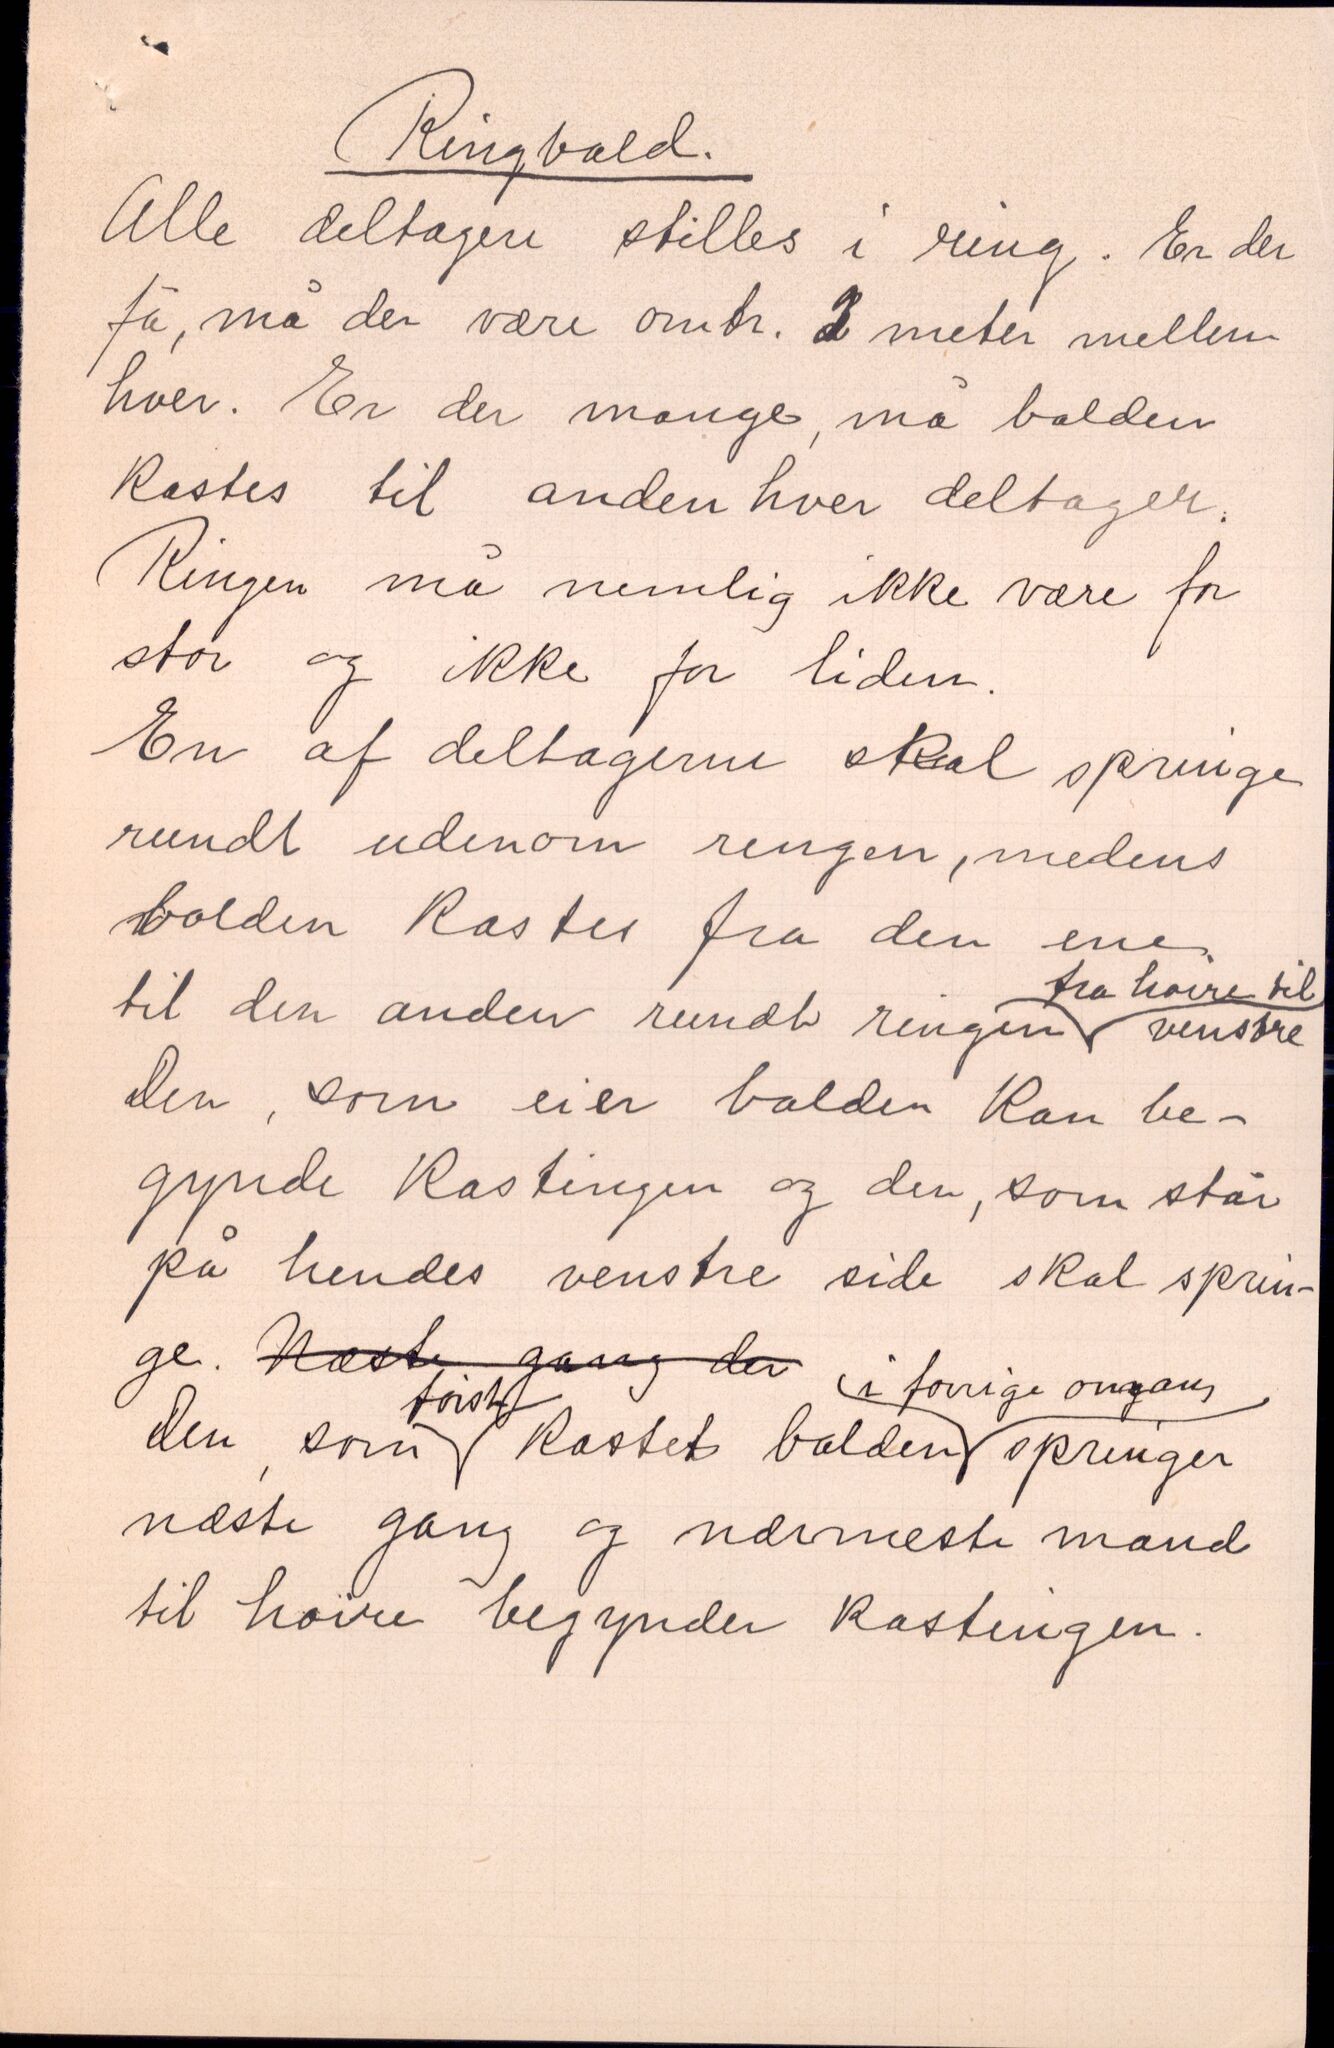 Ringbald.
Alle deltagere stilles i ring. Er der
få, må der være omtr. 2 meter mellem
hver. Er der mange, må balden
kastes til anden hver deltager.
Ringen må nemlig ikke være for
stor og ikke for liden.
En af deltagerne skal springe
rundt udenom ringen, medens
balden kastes fra den ene
til den anden rundt ringen fra høire til venstre
Den, som eier balden kan be-
gynde kastingen og den, som står
på hendes venstre side skal sprin-
ge. Næste gang der
Den, som først kastet balden i forrige omgang springer
næste gang og nærmeste mand
til høire begynder kastingen.